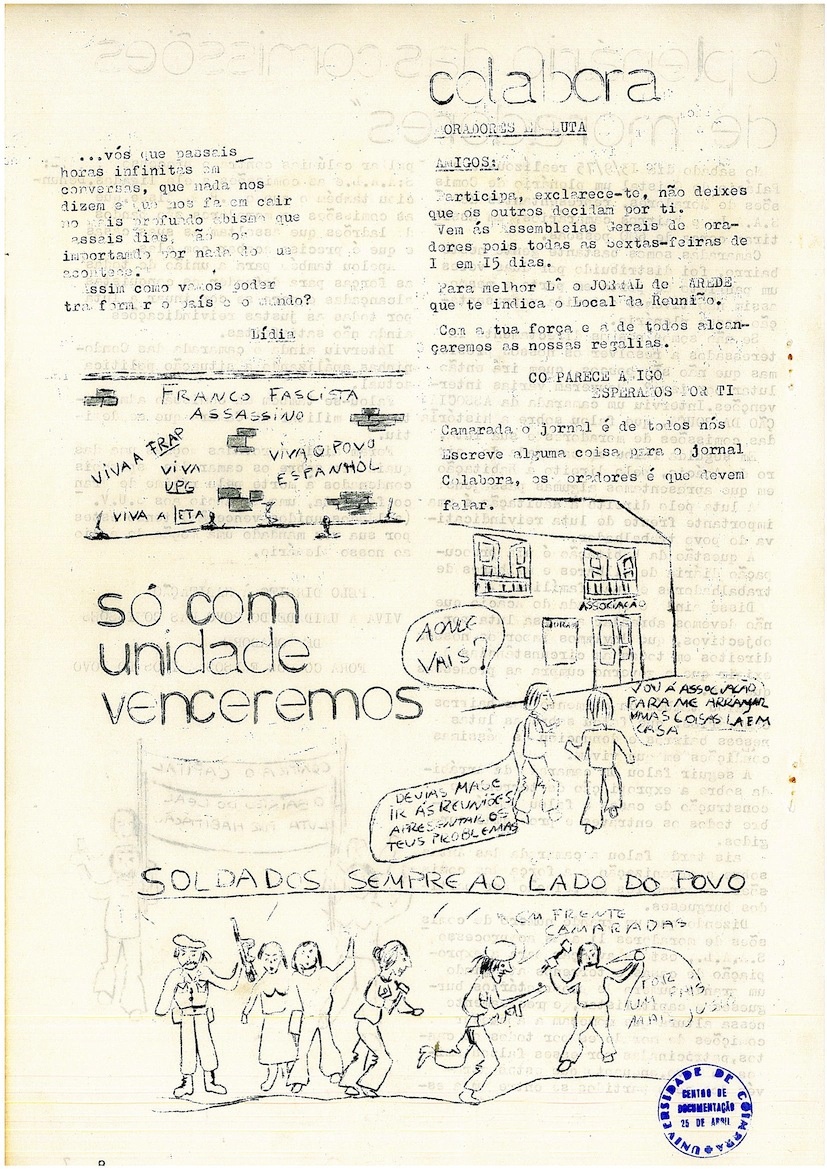 colabora
MORADORES EM LUTA
AMIGOS:
Participa, esclarece-te, não deixes
que os outros decidam por ti.
Vem ás Assembleias Gerais de
dores pois todas as Sextas-feiras de
I em I5 dias.
Para melhor Lê o JORNAL de PAREDE
que te indica o Local da Reunião.
Com a tua força e a de todos alcan-
çaremos as nossas regalias.
COMPARECE AMIGO
ESPERAMOS POR TI
Camarada o jornal é de todos nós
Escreve alguma coisa para o jornal
Colabora, os moradores é que devem
falar.
...vós que passais
horas infinitas em
conversas, que nada nos
dizem e que nos fazem cair
no mais profundo abismo que
passais dias, não os
importando por nada do que
acontece.
Assim como vamos poder
transformar o país e o mundo?
Lídia
FRANCO FASCISTA
ASSASSINO
VIVA A FRAP
VIVA
UPG
VIVA A ETA
VIVA O POVO
ESPANHOL
só com
unidade
venceremos
ASSOCIAÇÃO
AONDE
VAIS?
VOU Á ASSOCIAÇÃO
PARA ME ARRANJAR
UMAS COISAS LA EM
CASA
DEVIAS
IR ÁS REUNIÕES
APRESENTAR OS
TEUS PROBLEMAS
SOLDADOS SEMPRE AO LADO DO POVO
EM FRENTE
CAMARADAS
POR
UM PAIS
MAIS
UNIVERSIDADE DE COIMBRA
CENTRO DE
DOCUMENTAÇÃO
25 DE ABRIL
8